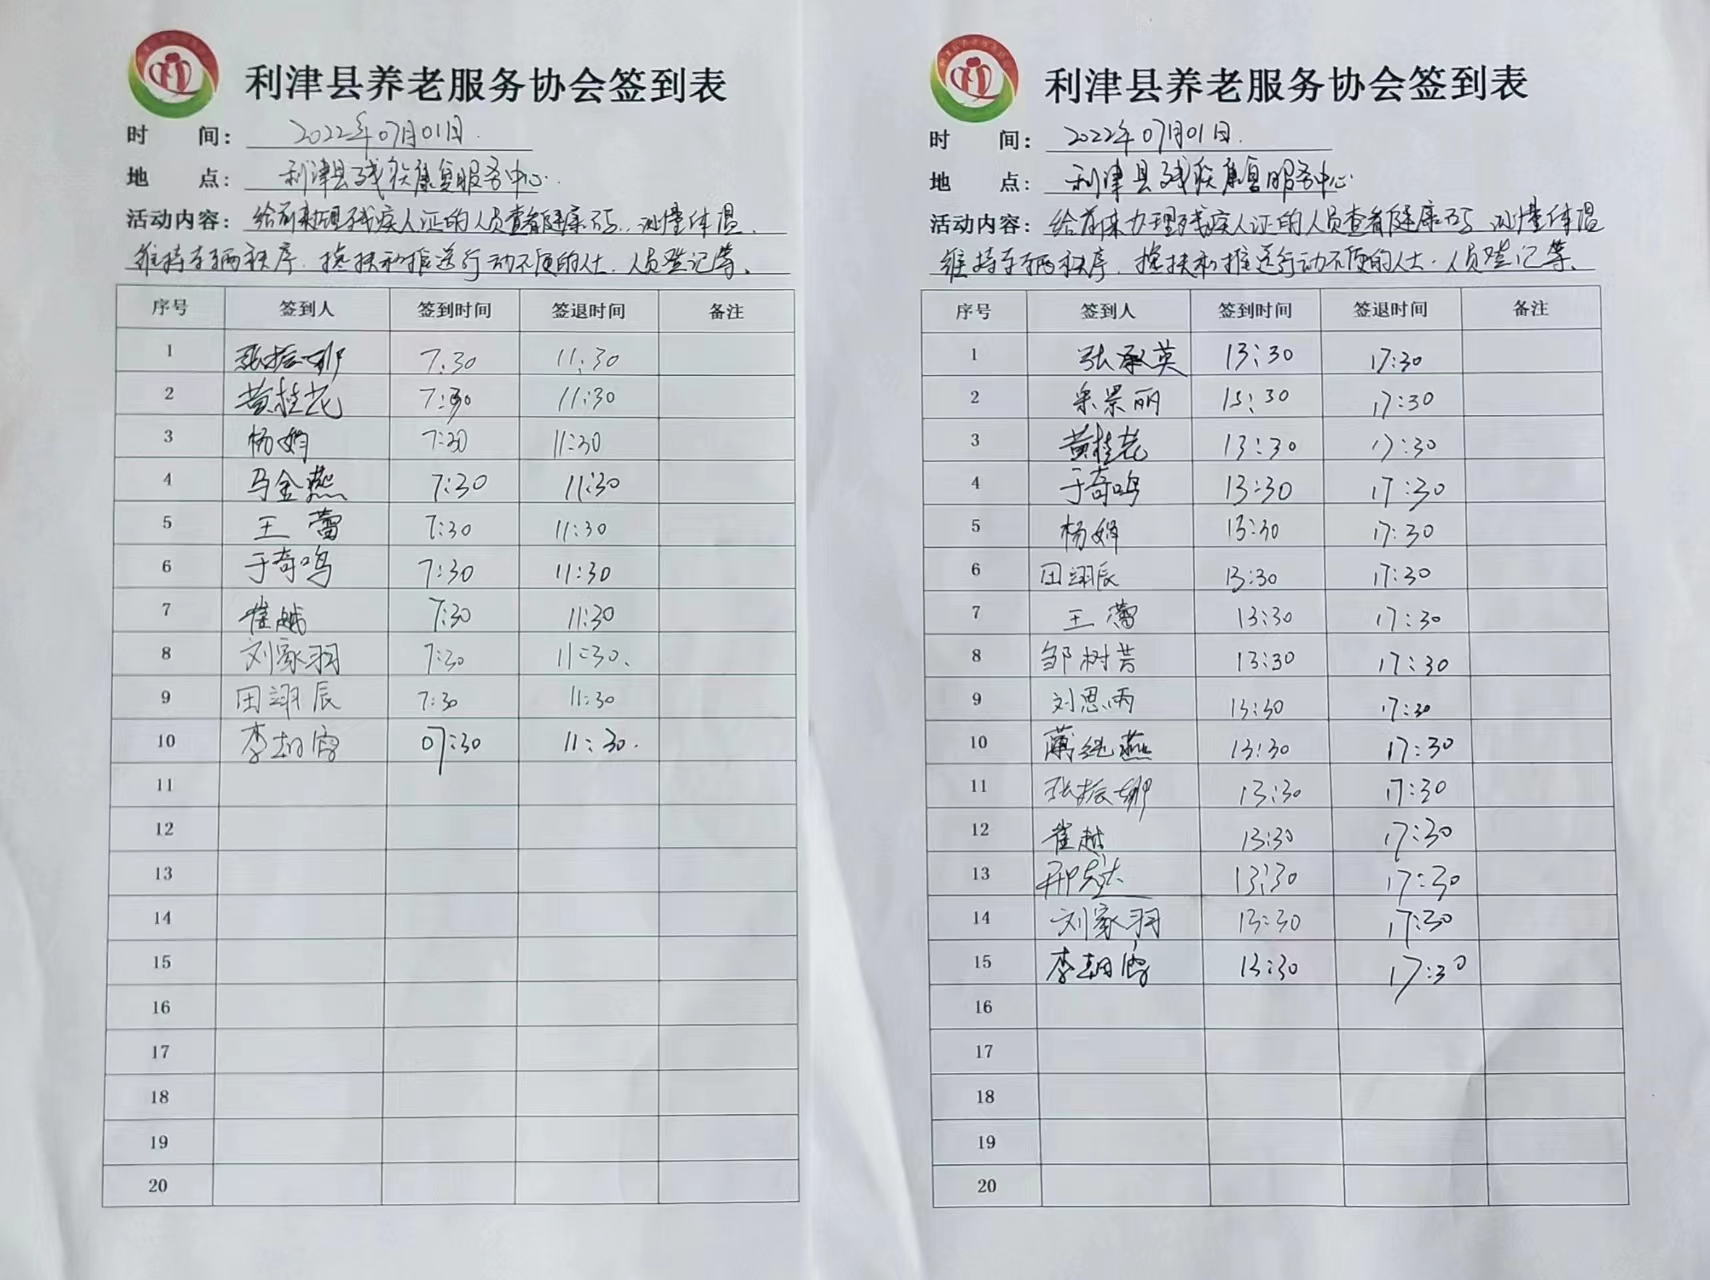 利津县养老服务协会签到表
时 间: 2022年07月01日.
地 点: 利津县残疾康复服务中心.
活动内容: 给前来办理残疾人证的人员查看健康码、测量体温、
维持车辆秩序、搀扶和推送行动不便的人士、人员登记等、
序号 签到人 签到时间 签退时间 备注
1 张振娜 7:30 11:30
2 黄桂花 7:30 11:30
3 杨娟 7:30 11:30
4 马金燕 7:30 11:30
5 王蕾 7:30 11:30
6 于奇鸣 7:30 11:30
7 崔越 7:30 11:30
8 刘家羽 7:30 11:30.
9 田翊辰 7:30 11:30
10 李 07:30 11:30.
11
12
13
14
15
16
17
18
19
20
利津县养老服务协会签到表
时 间: 2022年07月01日.
地 点: 利津县残疾康复服务中心
活动内容: 给前来办理残疾人证的人员查看健康码、测量体温
维持车辆秩序、搀扶和推送行动不便的人士、人员登记等、
序号 签到人 签到时间 签退时间 备注
1 张承英 13:30 17:30
2 景丽 13:30 17:30
3 黄桂花 13:30 17:30
4 于奇鸣 13:30 17:30
5 杨娟 13:30 17:30
6 田翊辰 13:30 17:30
7 王蕾 13:30 17:30
8 邹树芳 13:30 17:30
9 刘思雨 13:30 17:30
10 继燕 13:30 17:30
11 张振娜 13:30 17:30
12 崔越 13:30 17:30
13 13:30 17:30
14 刘家羽 13:30 17:30
15 李 13:30 17:30
16
17
18
19
20